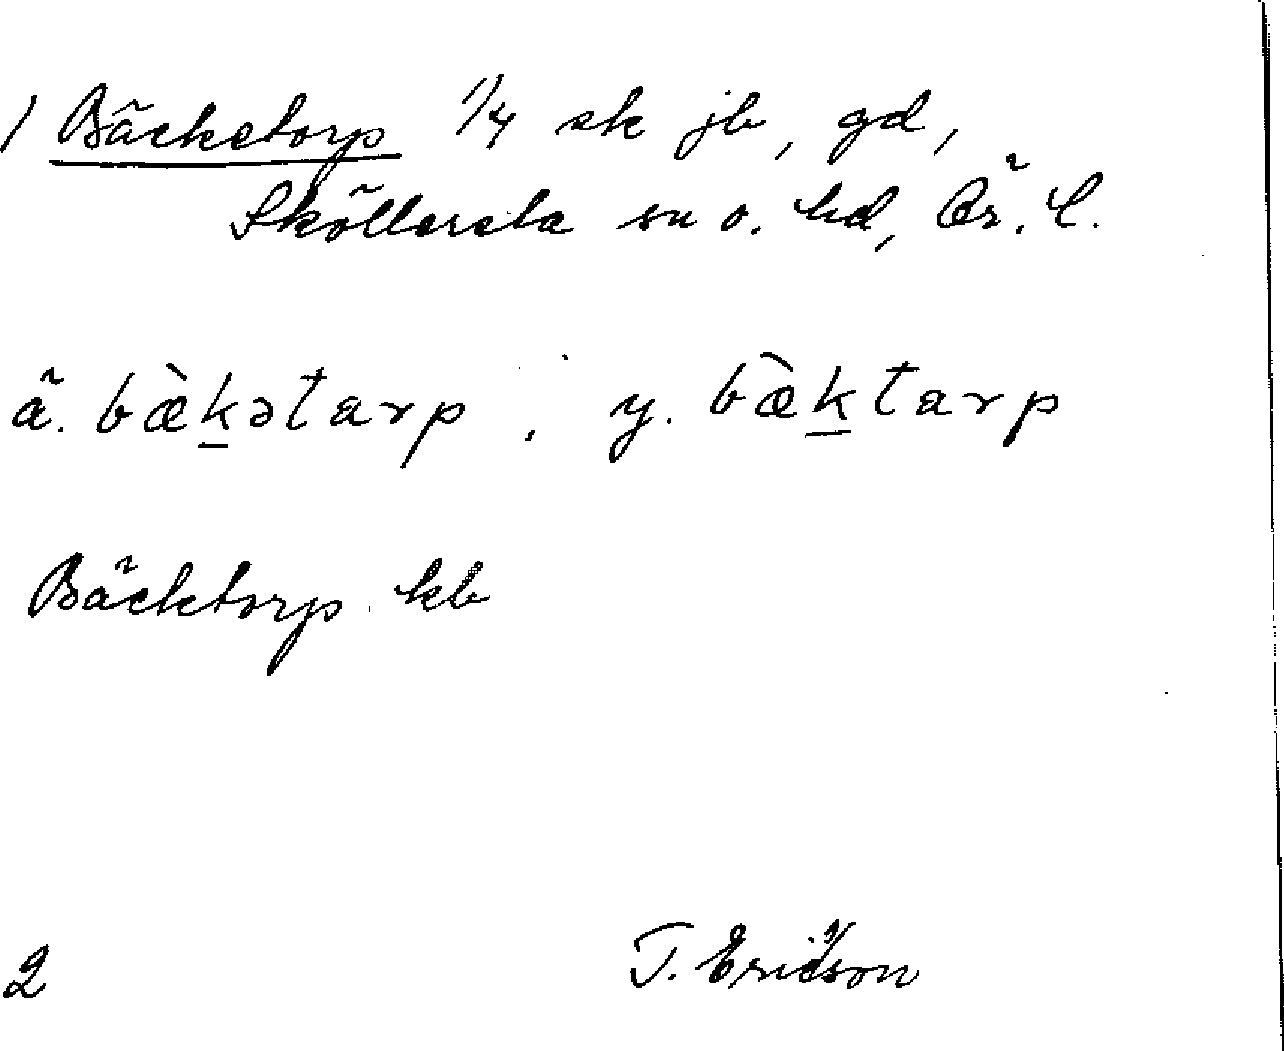 1 Bäcketorp 1/4 sk jb, gd,
Sköllersta sn o. hd, Ör. l.
ä. bæ̀k̲ətarp , y. bæ̀k̲tarp
Bäcktorp kb
2 T. Ericson